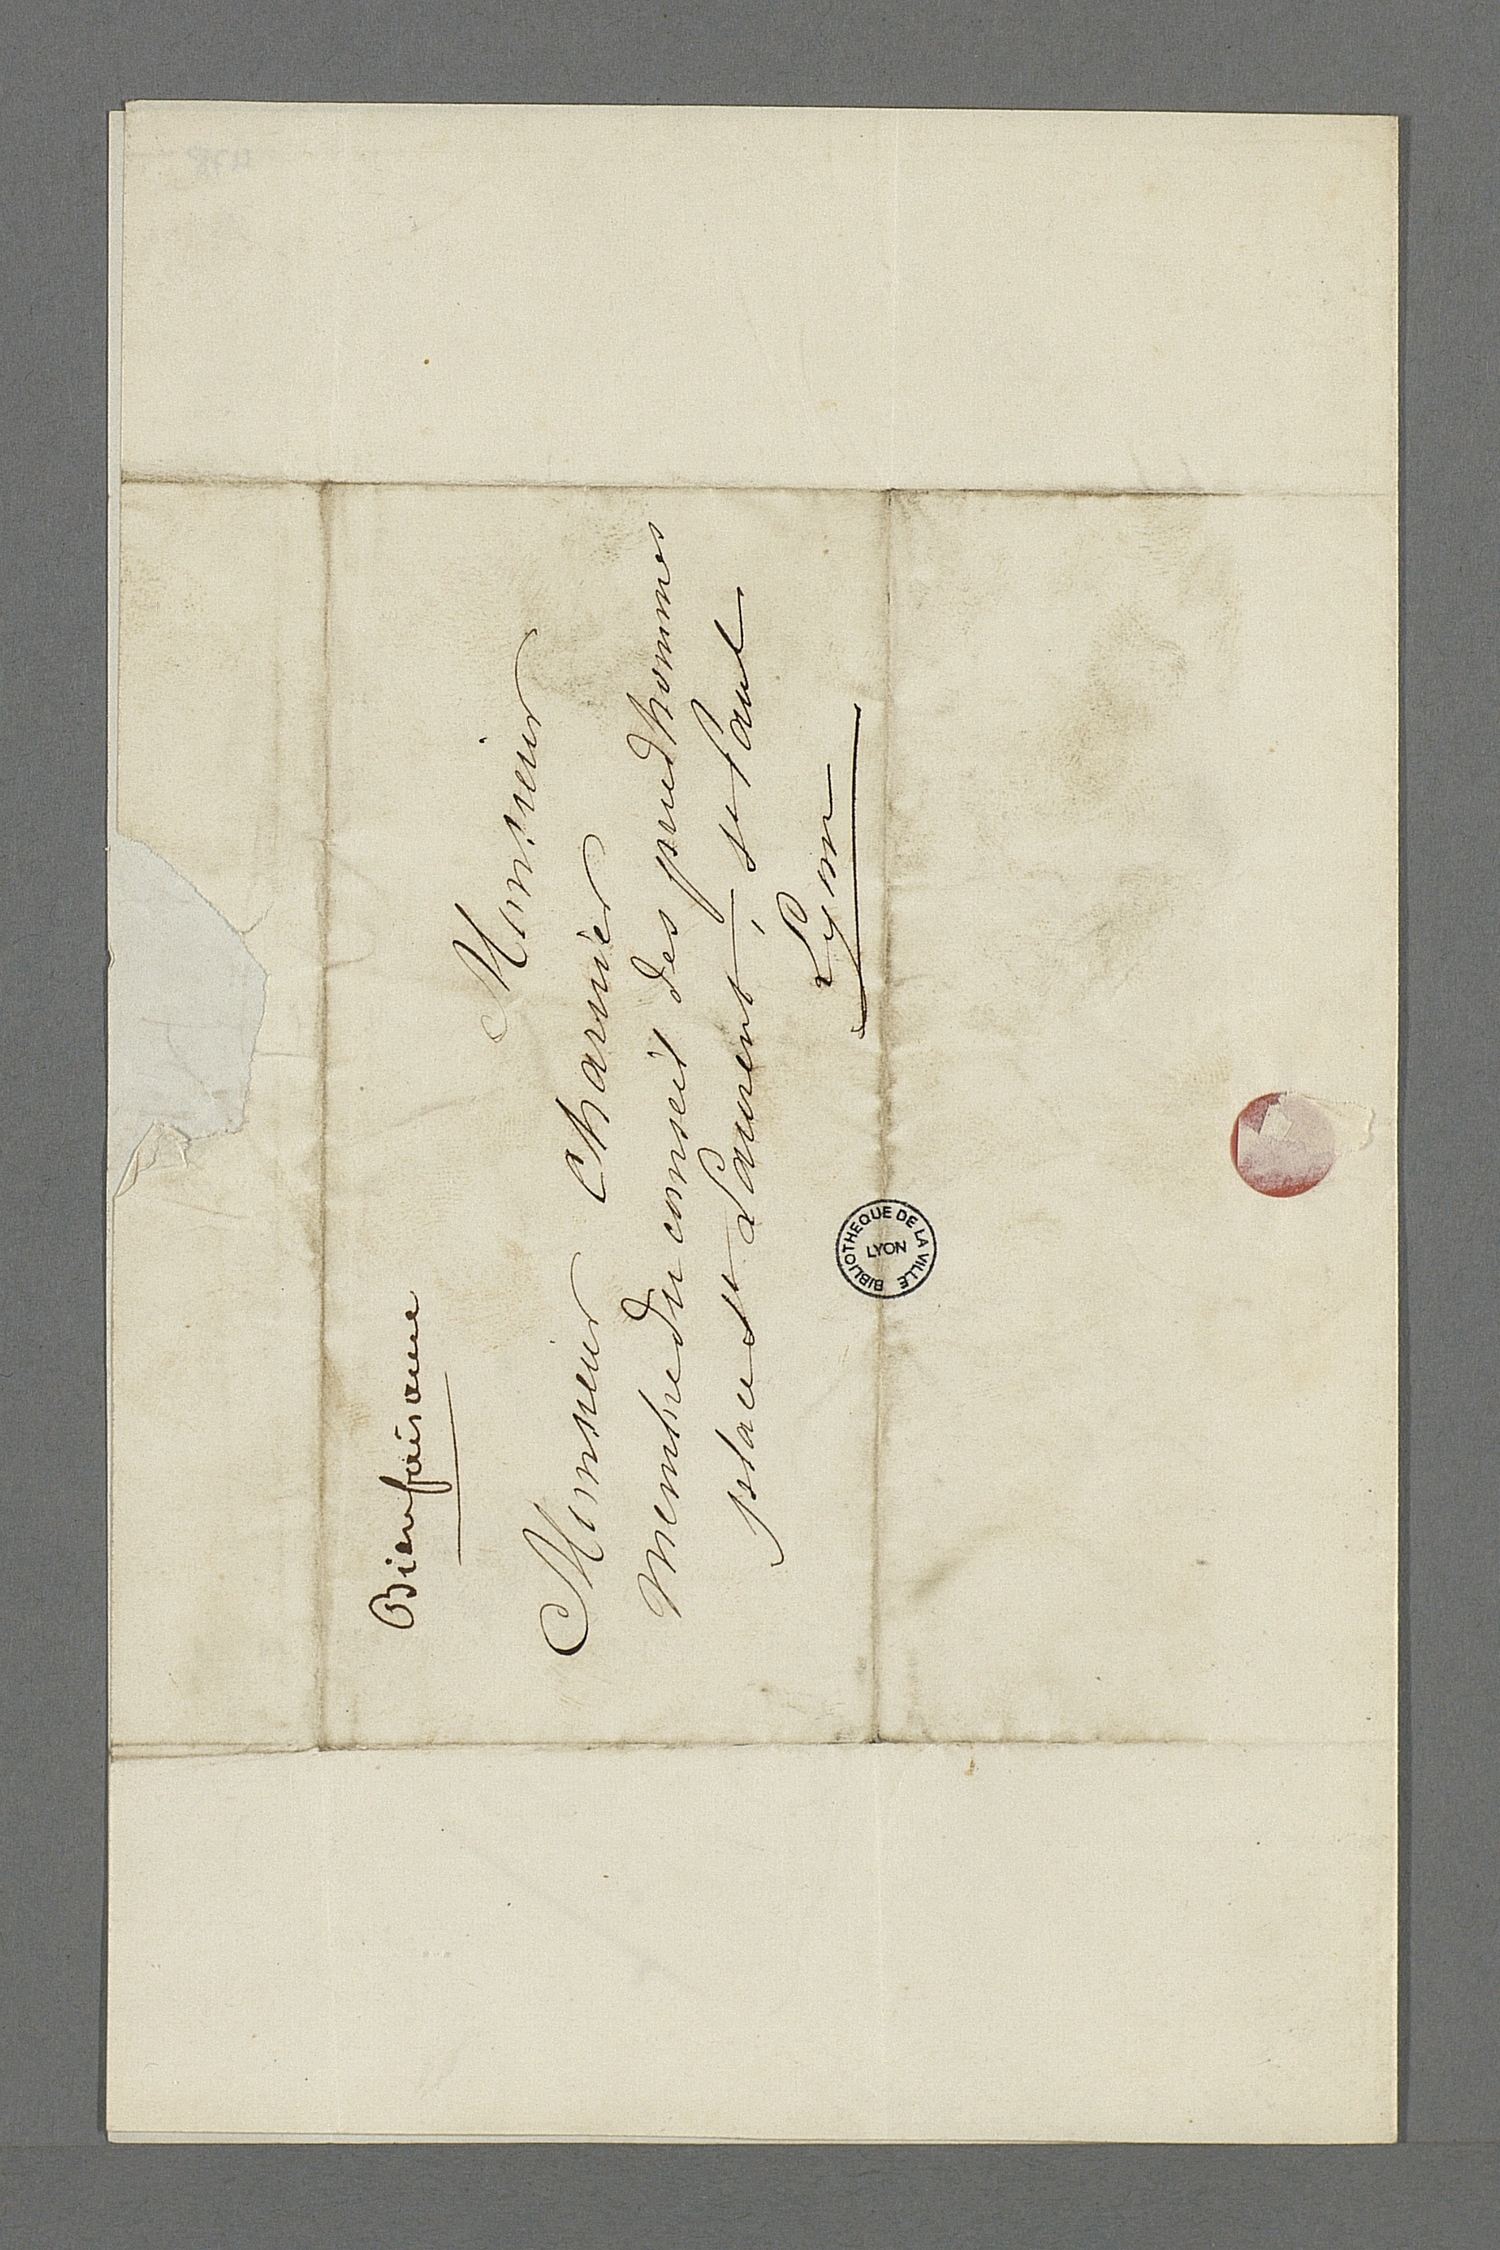 Bienfaisance
Monsieur
Monsieur Charnier
Membre du conseil des prudhommes
place st Laurent, st Paul
Lyon
BIBLIOTHEQUE DE LA VILLE
LYON